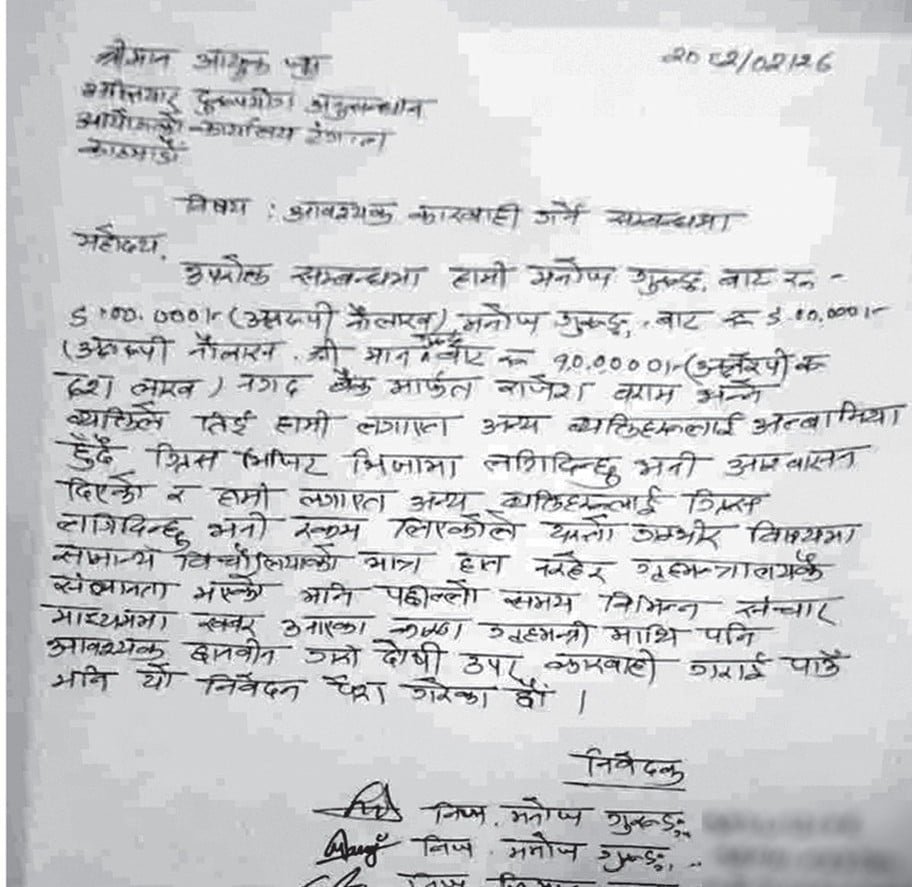 श्रीमान आयुक्त ज्यू
2082/02/26
अख्तियार दुरुपयोग अनुसन्धान
आयोगको कार्यालय टंगाल
काठमाडौं
विषय : आवश्यक कारवाही गर्ने सम्बन्धमा
महोदय,
उपरोक्त सम्बन्धमा हामी मनोज गुरुङ, बाट रु -
९,००,०००।- (अक्षरुपी नौलाख), मनोज गुरुङ, बाट रु ९,००,०००।-
(अक्षरुपी नौलाख, श्री मान बाट रु १०,०००००।- (अक्षरुपी रु
दश लाख) नगद बैंक मार्फत राजेश भन्ने
व्यक्तिले लिई हामी लगाएत अन्य व्यक्तिहरुलाई
हुँदै भिजिट भिजामा लगिदिन्छु भनी आश्वासन
दिएको र हामी लगाएत अन्य व्यक्तिहरुलाई
लगिदिन्छु भनी रकम लिएकोले यस्तो गम्भीर विषयमा
सामान्य विचौलियाको मात्र हात नरहेर गृहमन्त्रालयकै
संलग्नता भएको भनि पछिल्लो समय विभिन्न संचार
माध्यममा खबर आएका गृहमन्त्री माथि पनि
आवश्यक छानवीन गरी दोषी उपर कारवाही गराई पाउँ
भनि यो निवेदन पेश गरेका छौं ।
निवेदक
निज. मनोज गुरुङ
निज. मनोज गुरुङ